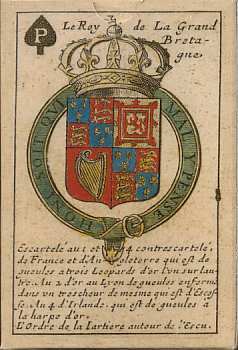 P
Le Roy de La Grand
Breta-
gne
HONI SOIT QUI MAL Y PENSE
Escartelé au 1 et 4 contrescartelé,
de France et d'Angleterre qui est de
gueules a trois Leopards d'or l'un sur lau-
tre. Au 2 d'or au Lyon de gueules enfermé
dans un trescheur de mesme qui est d'Escos-
se. Au 4 d'Irlande. qui est de gueules a
la harpe d'or.
L'Ordre de la Iartiere autour de l'Escu.